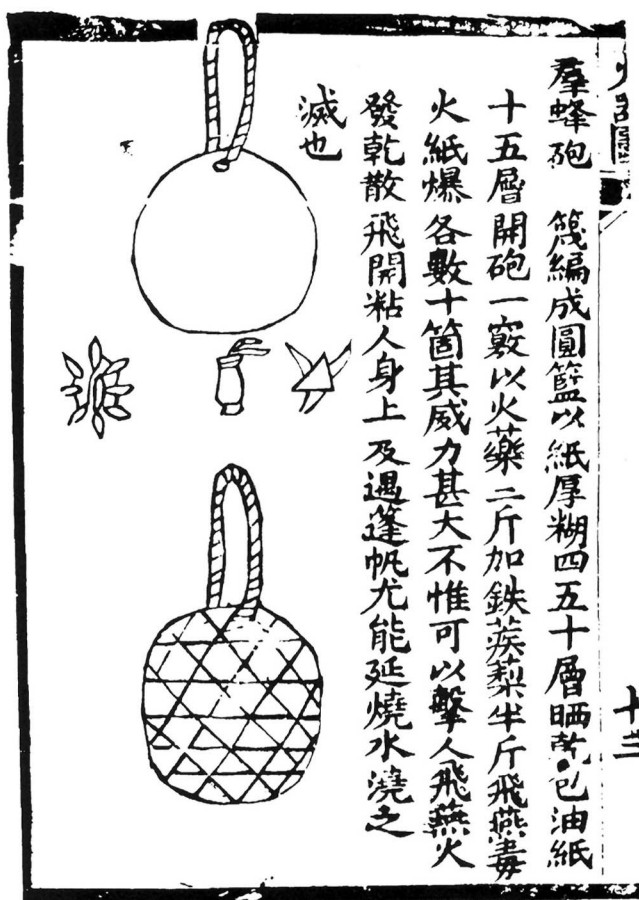 火器圖
十三
羣蜂砲 篾編成圓籃以紙厚糊四五十層晒乾包油紙
十五層開砲一竅以火藥二斤加鉄蒺梨半斤飛燕毒
火紙爆各數十箇其威力甚大不惟可以擊人飛燕火
發乾散飛開粘人身上及遇篷帆尤能延燒水澆之
滅也